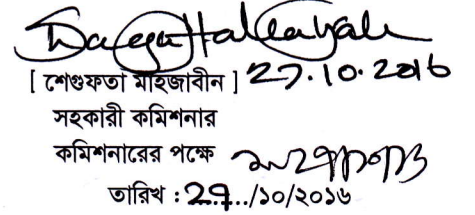 [ শেগুফতা মাহজাবীন ] 27.10.2016
সহকারী কমিশনার
কমিশনারের পক্ষে
তারিখ : 27../১০/২০১৬